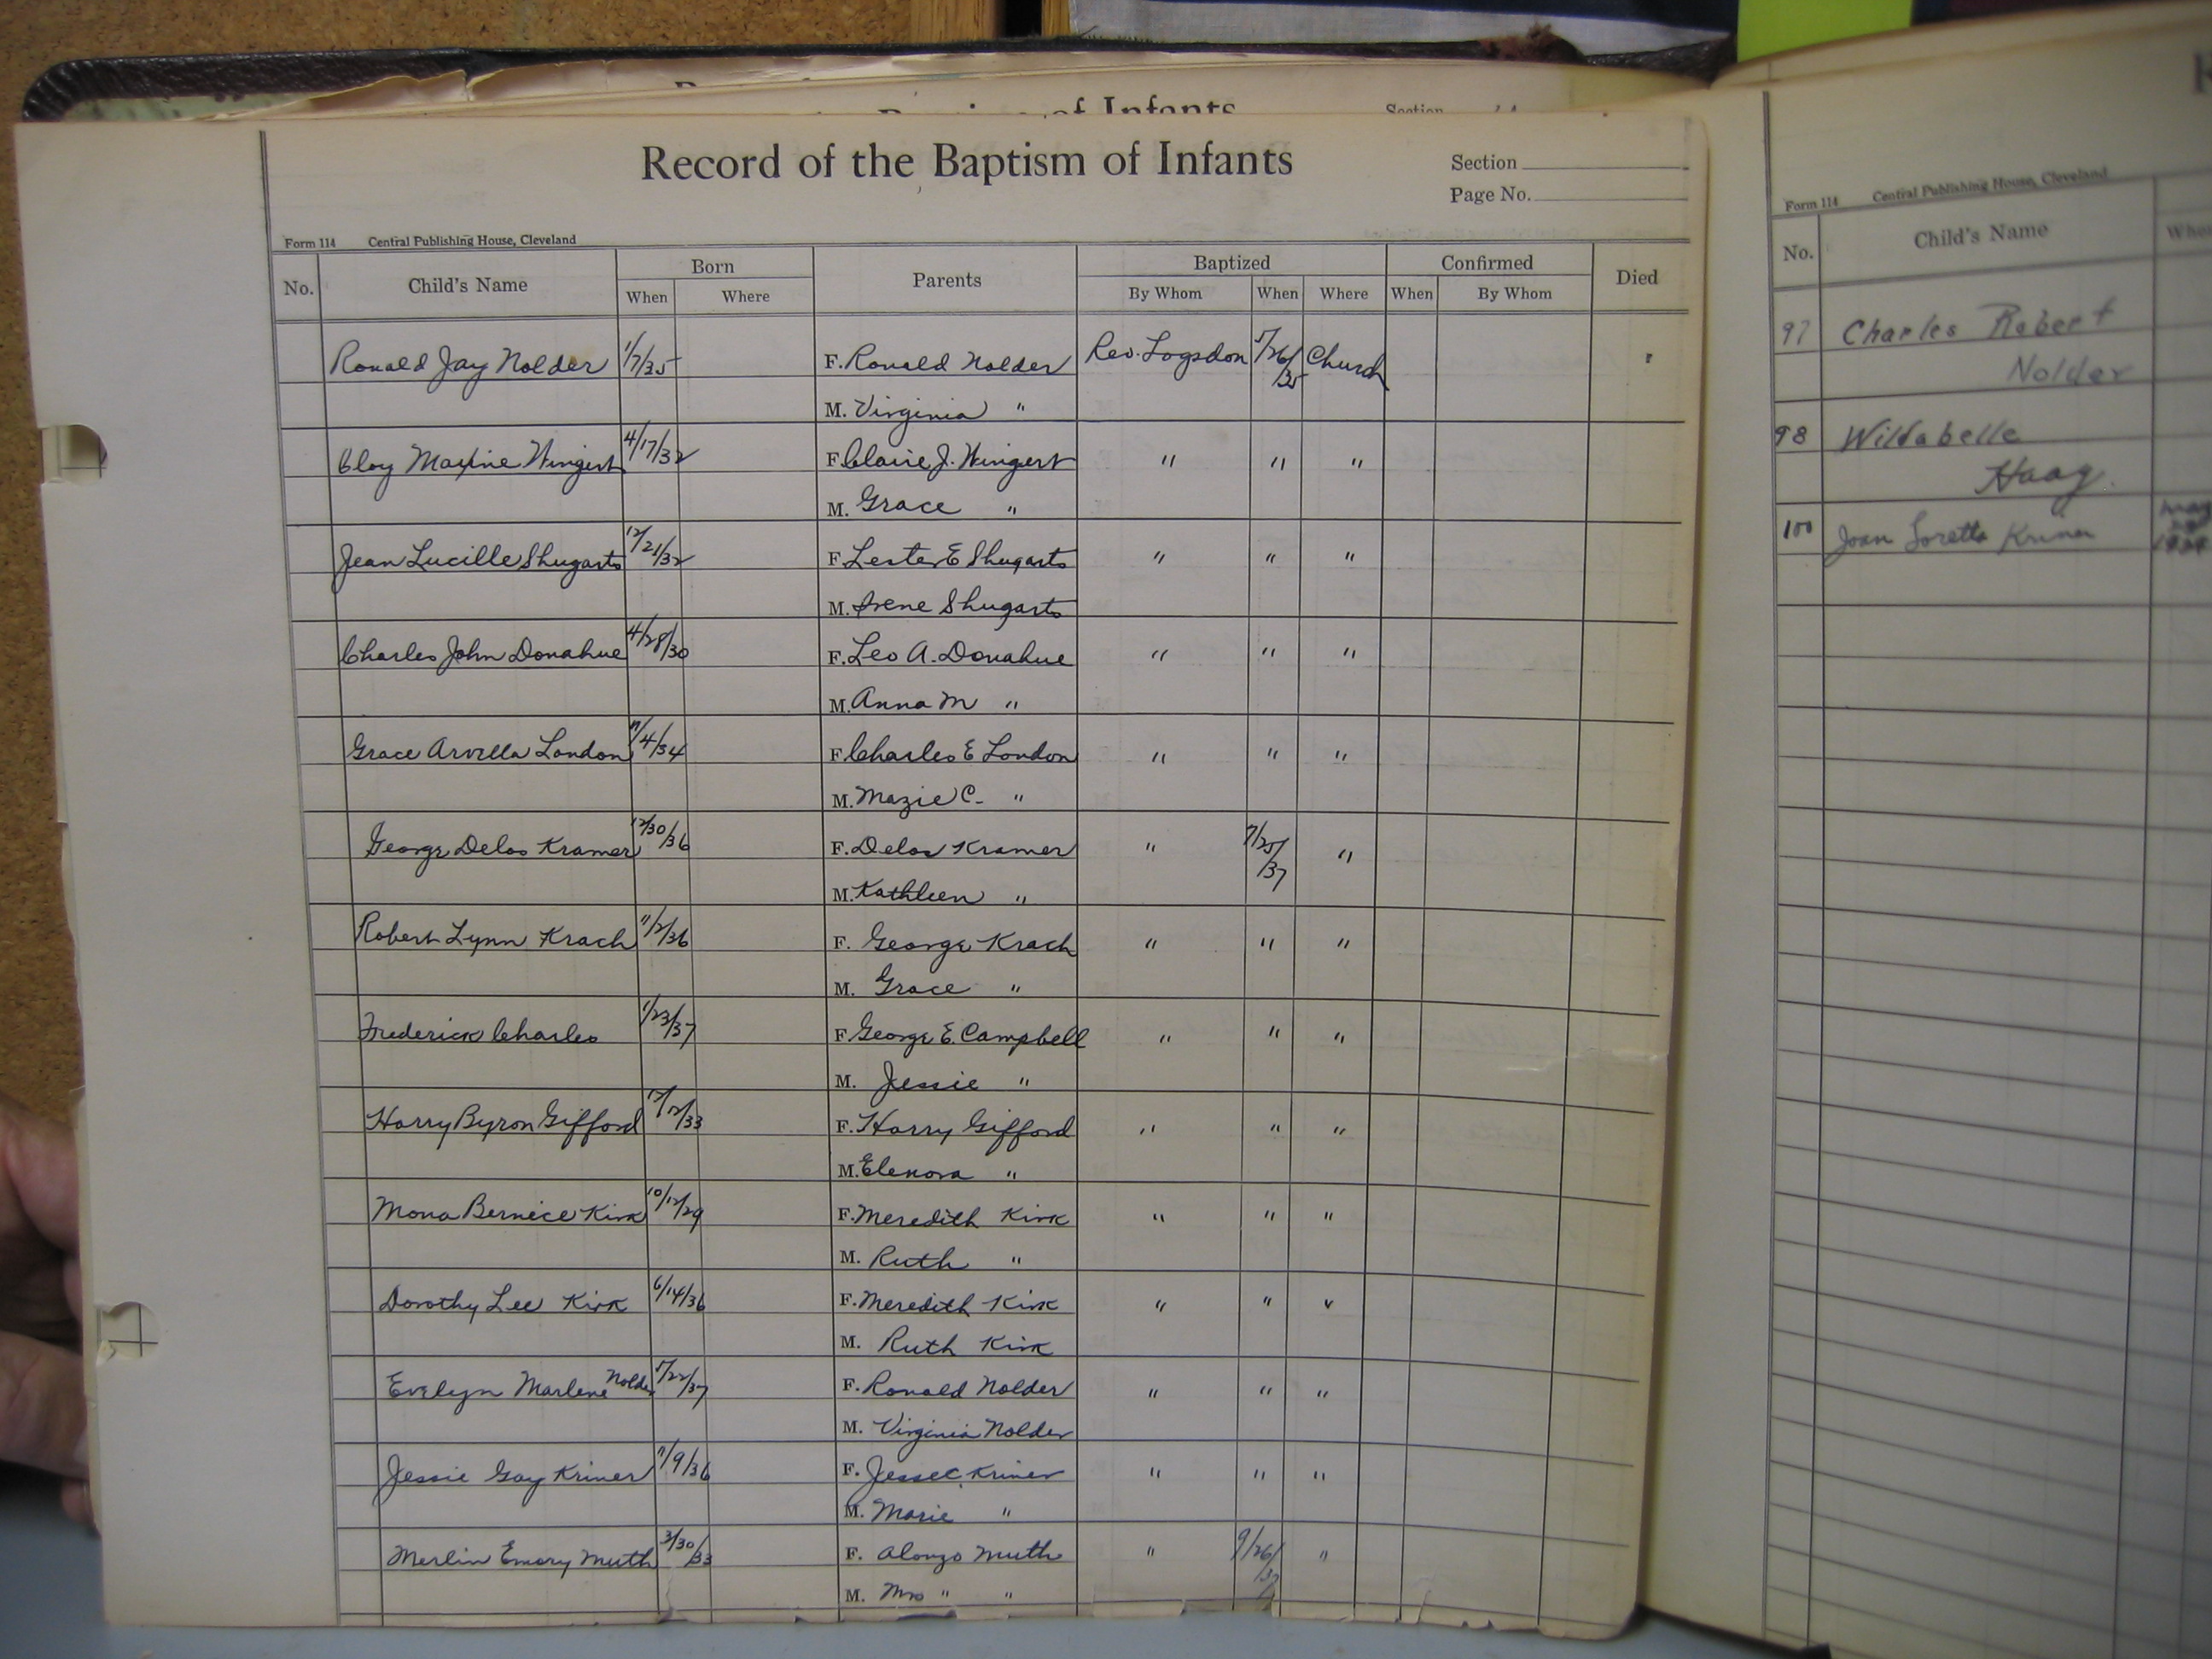 of Infants
Section
Record of the Baptism of Infants
Section
Page No.
Form 114 Central Publishing House, Cleveland
No. Child's Name Born Parents Baptized Confirmed Died
When Where By Whom When Where When By Whom
Ronald Jay Nolder 1/7/35 F. Ronald Nolder Rev. Logsdon 5/26/35 Church
M. Virginia "
Cloy Maxine Wingert 4/17/32 F. Claire J. Wingert " " "
M. Grace "
Jean Lucille Shugarts 12/21/32 F. Lester E Shugarts " " "
M. Irene Shugarts
Charles John Donahue 4/28/30 F. Leo A. Donahue " " "
M. Anna M "
Grace Arvilla London 11/4/34 F. Charles E London " " "
M. Mazie C. "
George Delos Kramer 12/30/36 F. Delos Kramer " 7/25/37 "
M. Kathleen "
Robert Lynn Krach 11/2/36 F. George Krach " " "
M. Grace "
Frederick Charles 1/23/37 F. George E. Campbell " " "
M. Jessie "
Harry Byron Gifford 12/12/33 F. Harry Gifford " " "
M. Elenora "
Mona Bernece Kirk 10/12/29 F. Meredith Kirk " " "
M. Ruth "
Dorothy Lee Kirk 6/14/36 F. Meredith Kirk " " "
M. Ruth Kirk
Evelyn Marlene Nolder 5/22/37 F. Ronald Nolder " " "
M. Virginia Nolder
Jessie Gay Kriner 11/9/36 F. Jesse C. Kriner " " "
M. Marie "
Merlin Emory Muth 3/30/33 F. Alonzo Muth " 9/26/37 "
M. Mrs " "
Form 114 Central Publishing House, Cleveland
No. Child's Name When
97 Charles Robert
Nolder
98 Wildabelle
Haag
100 Joan Loretta Kriner